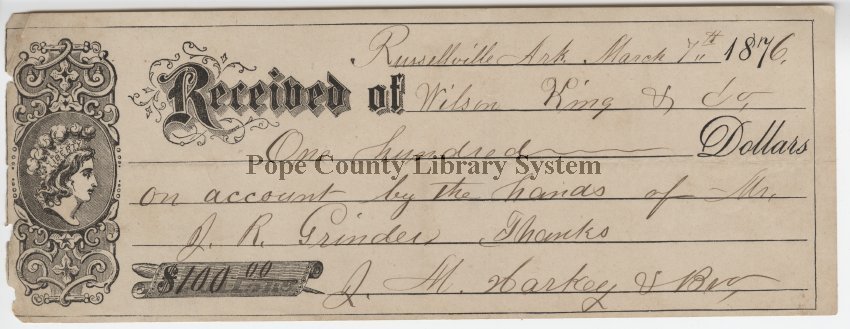 Russellville Ark March 7th 1876.
Received of Wilson King & Co,
One hundred Dollars
Pope County Library System
on account by the hands of Mr.
J. R. Grinder Thanks
$100.00 J. M. Harkey & Bro,